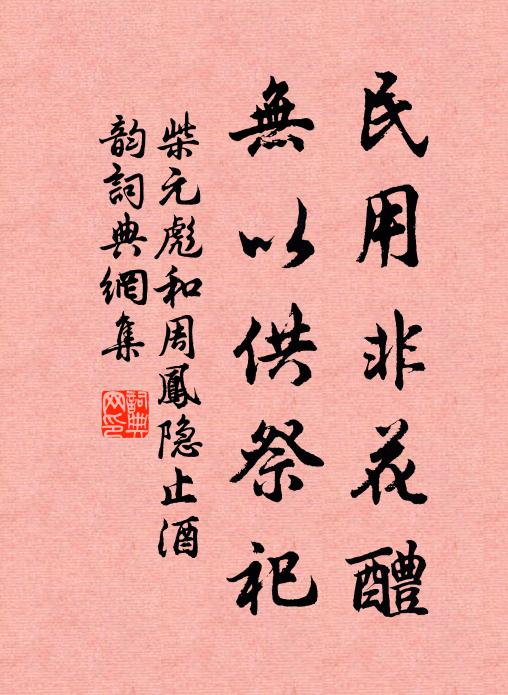 民用非花醴
無以供祭祀
柴元彪和周鳳隐止酒
韵詞典網集
詞典网印